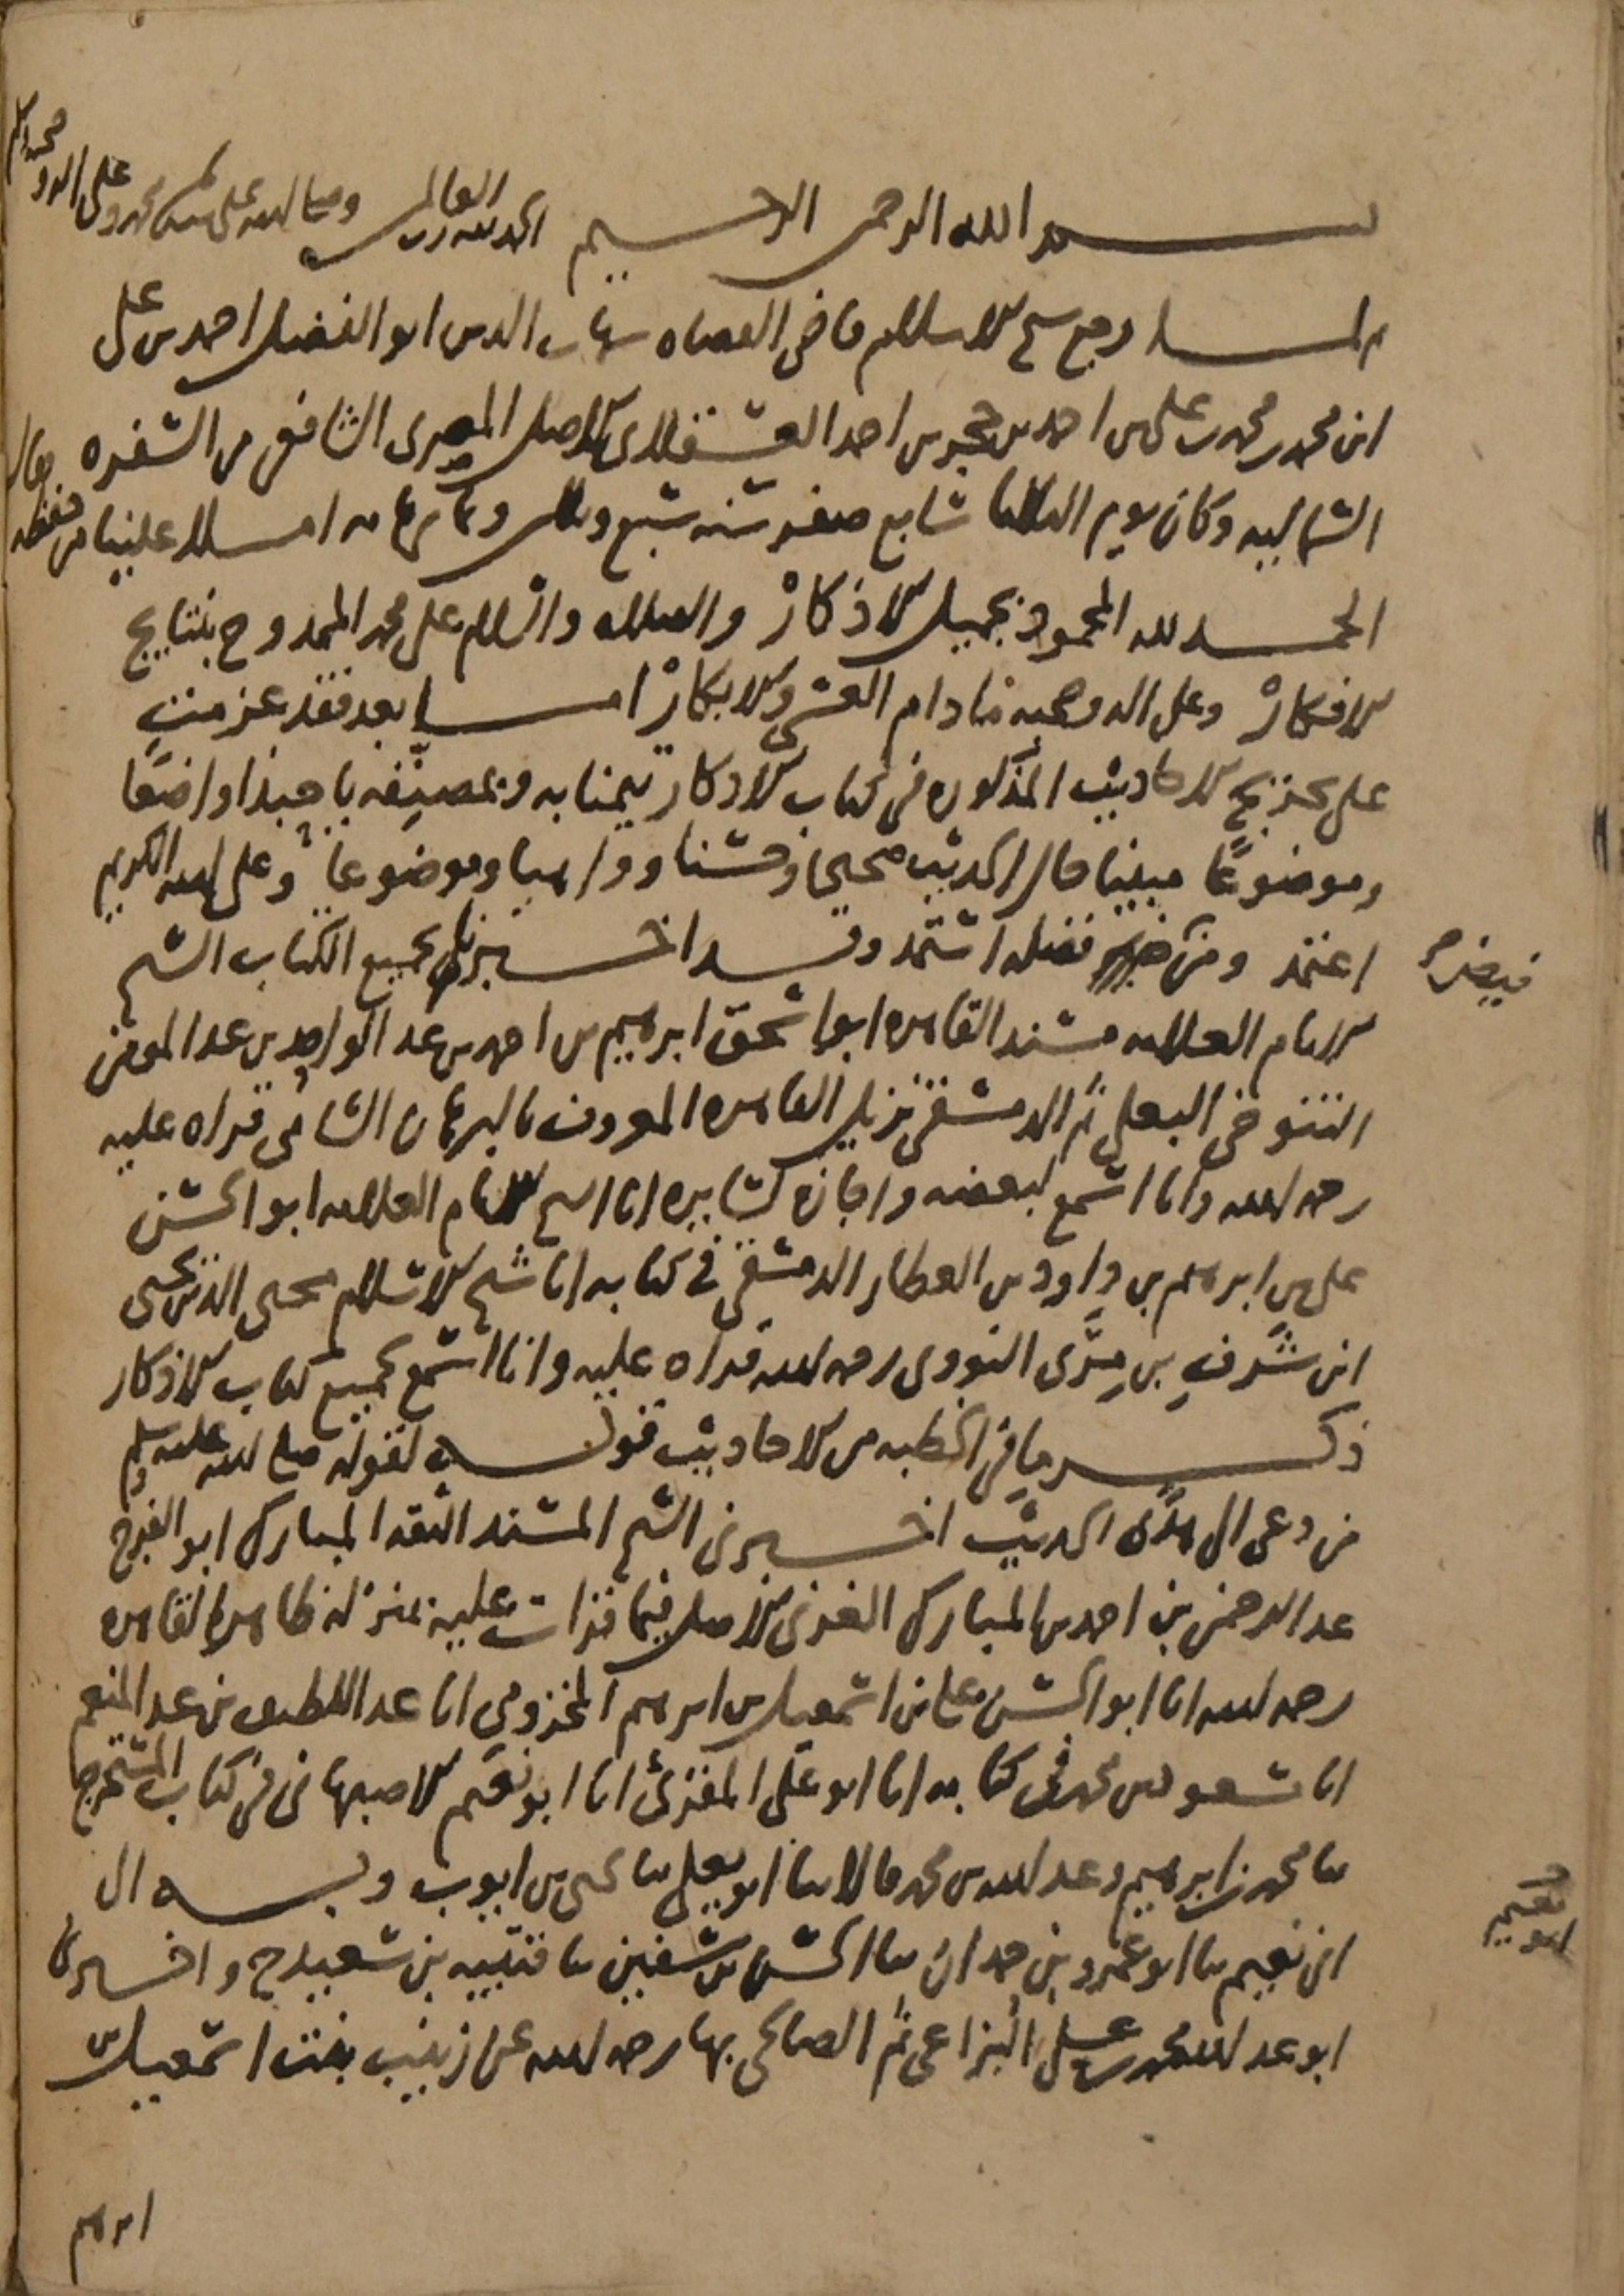 بسم الله الرحمن الرحيم الحمد لله رب العالمين وصلى الله على سيدنا محمد وعلى اله وصحبه وسلم
لما رجع شيخ الاسلام قاضي القضاه شهاب الدين ابو الفضل احمد بن علي
ابن محمد بن محمد بن علي بن احمد بن حجر بن احمد العسقلاني الاصل المصري الشافعي من السفره
الشماليه وكان يوم الثلاثا سابع صفر سنه سبع وثلاثين وثمانمايه املا علينا من حفظه فقال
الحمد لله المحمود بجميل الاذكار والصلاه والسلام على محمد الممدوح بنتايج
الافكار وعلى اله وصحبه ما دام العشي والابكار اما بعد فقد عزمت
على تخريج الاحاديث المذكوره في كتاب الاذكار تيمنا به وبمصنفه يا حبذا واضعا
وموضوعا مبينا حال الحديث صحيحا وحسنا وواهيا وموضوعا وعلى الله الكريم
اعتمد ومن فضله استمد وقد اخبرني بجميع الكتاب الشيخ
فيض
الامام العلامه مسند القاهره ابو اسحق ابرهيم بن احمد بن عبد الواحد بن عبد المومن
التنوخي البعلي ثم الدمشقي نزيل القاهره المعروف بالبرهان الشامي قراه عليه
رحمه الله وانا اسمع لبعضه واجازه لسايره انا الشيخ الامام العلامه ابو الحسن
علي بن ابرهيم بن داود بن العطار الدمشقي في كتابه انا شيخ الاسلام محيي الدين يحيى
ابن شرف بن مرى النووي رحمه الله قراه عليه وانا اسمع لجميع كتاب الاذكار
ذكر ما في الخطبه من الاحاديث قوله لقوله صلى الله عليه وسلم
من دعى الى هدًى الحديث اخبرني الشيخ المسند الثقه المبارك ابو الفرج
عبد الرحمن بن احمد بن المبارك الغزي الاصل فيما قرات عليه بمنزله ظاهر القاهره
رحمه الله انا ابو الحسن علي بن اسمعيل بن ابرهيم المخزومي انا عبد اللطيف بن عبد المنعم
انا مسعود بن محمد في كتابه انا ابو علي المقرئ انا ابو نعيم الاصبهاني في كتاب المستخرج
ثنا محمد بن ابرهيم وعبد الله بن محمد قالا ثنا ابو يعلى ثنا يحيى بن ايوب وبه الى
ابن نعيم ثنا ابو عمرو بن حمدان ثنا الحسن بن سفين ثنا قتيبه بن سعيد ح واخبرنا
ابو نعيم
ابو عبد الله محمد بن علي البزاعي ثم الصالحي بها رحمه الله عن زينب بنت اسمعيل بن
ابرهيم